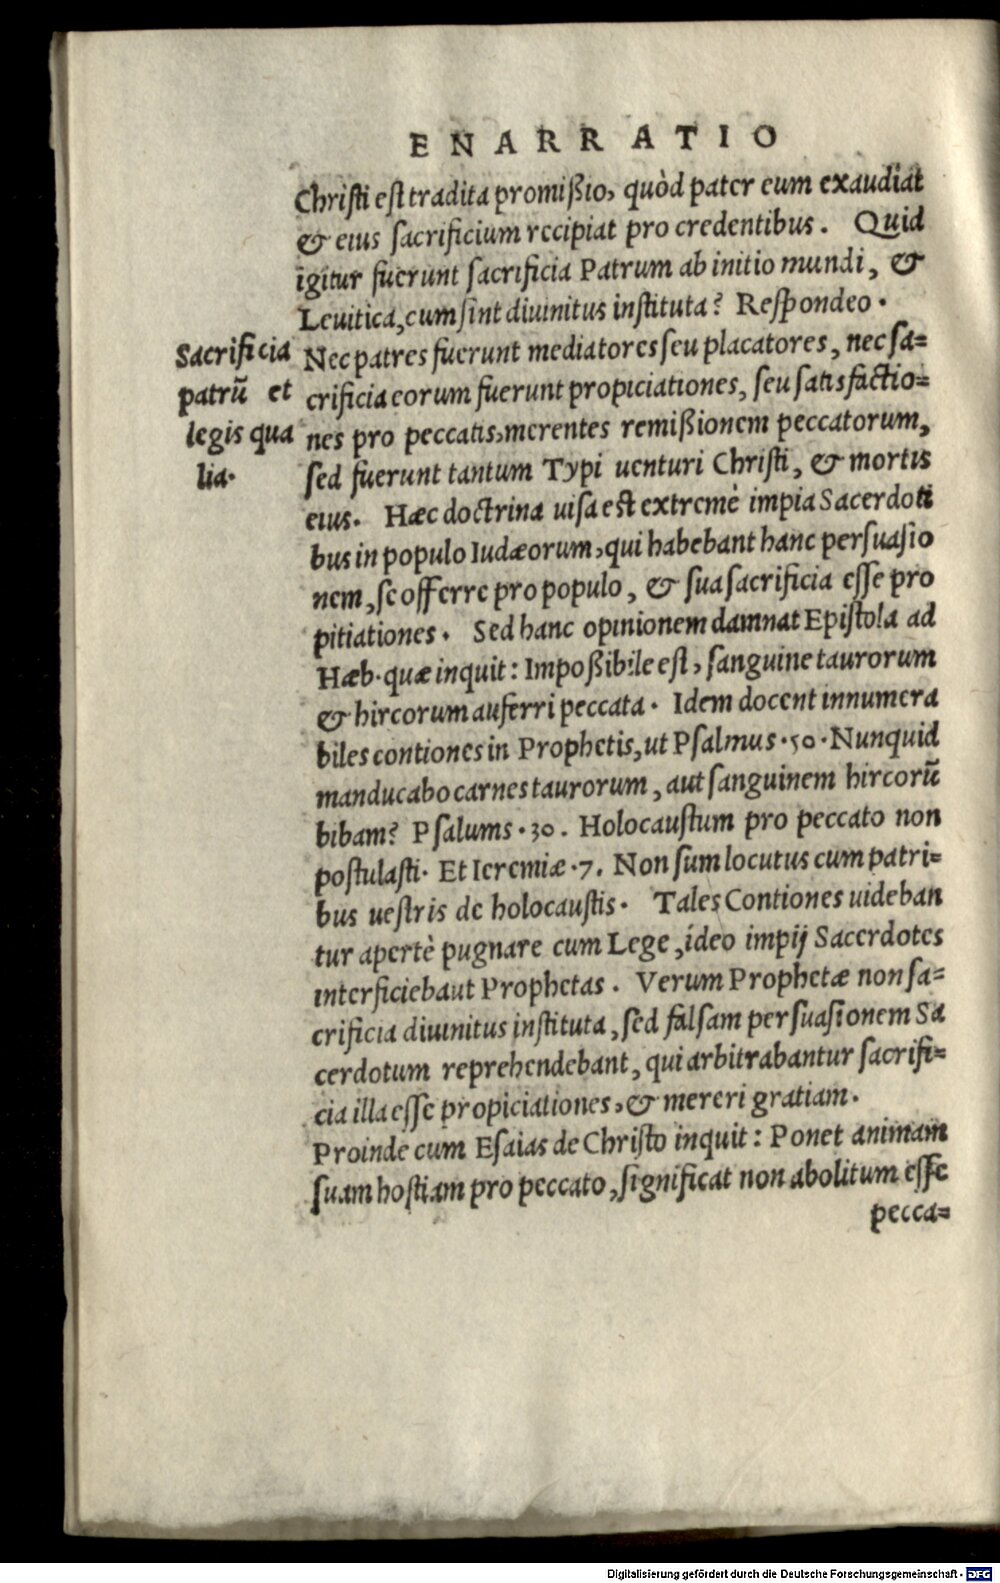 ENARRATIO
Christi est tradita promißio, quòd pater eum exaudiat
& eius sacrificium recipiat pro credentibus. Quid
igitur fuerunt sacrificia Patrum ab initio mundi, &
Leuitica, cum sint diuinitus instituta? Respondeo.
Sacrificia
patrũ et
legis qua
lia.
Nec patres fuerunt mediatores seu placatores, nec sa=
crificia eorum fuerunt propiciationes, seu satisfactio=
nes pro peccatis, merentes remißionem peccatorum,
sed fuerunt tantum Typi uenturi Christi, & mortis
eius. Hæc doctrina uisa est extremè impia Sacerdoti
bus in populo Iudæorum, qui habebant hanc persuasio
nem, se offerre pro populo, & sua sacrificia esse pro
pitiationes. Sed hanc opinionem damnat Epistola ad
Hæb. quæ inquit: Impoßibile est, sanguine taurorum
& hircorum auferri peccata. Idem docent innumera
biles contiones in Prophetis, ut Psalmus .50. Nunquid
manducabo carnes taurorum, aut sanguinem hircorũ
bibam? Psalums .30. Holocaustum pro peccato non
postulasti. Et Ieremiæ .7. Non sum locutus cum patri=
bus uestris de holocaustis. Tales Contiones uideban
tur apertè pugnare cum Lege, ideo impij Sacerdotes
interficiebaut Prophetas. Verum Prophetæ non sa=
crificia diuinitus instituta, sed falsam persuasionem Sa
cerdotum reprehendebant, qui arbitrabantur sacrifi=
cia illa esse propiciationes, & mereri gratiam.
Proinde cum Esaias de Christo inquit: Ponet animam
suam hostiam pro peccato, significat non abolitum esse
pecca=
Digitalisierung gefördert durch die Deutsche Forschungsgemeinschaft - DFG